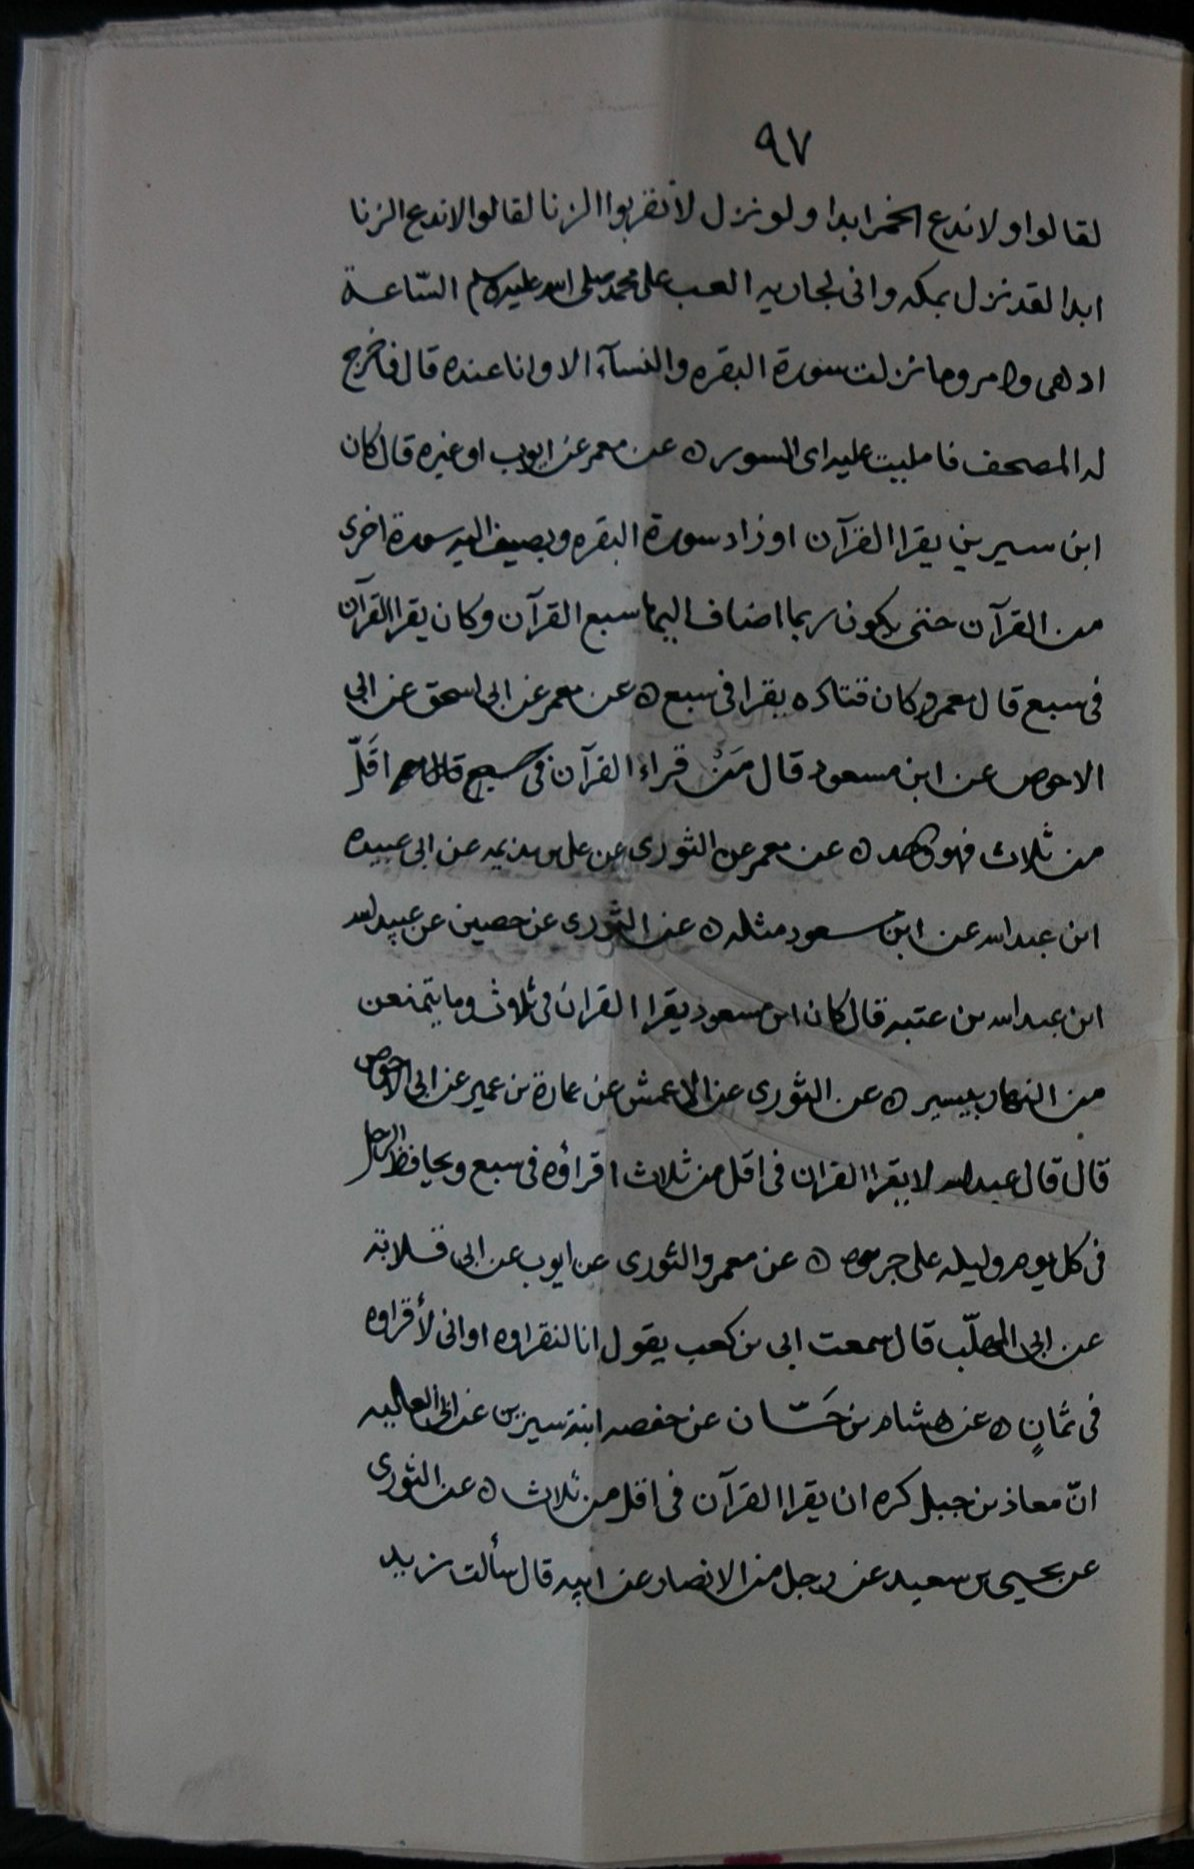 ٩٧
لقالوا ولا ندع الخمر ابدا ولو نزل لا تقربوا الزنا لقالوا لا ندع الزنا
ابدا لقد نزل بمكه وانى لجاريه العب على محمد صلى الله عليه وسلم السّاعة
ادهى وامر وما نزلت سورة البقره والنسآء الا وانا عنده قال فاخرج
له المصحف فامليت عليه اى السور ه عن معمر عن ايوب او غيره قال كان
ابن سيرين يقرا القرآن اوزاد سورة البقره ويضيف اليه سورة اخرى
من القرآن حتى يكون ربما اضاف اليها سبع القرآن وكان يقرا القرآن
فى سبع قال معمر وكان قتاده يقرا فى سبع ه عن معمر عن ابى اسحق عن ابى
الاحوص عن ابن مسعود قال مَنْ قراء القرآن فى اقَلّ
من ثلاث فهو ه عن معمر عن الثورى عن على بن بذيمه عن ابى عبيده
ابن عبدالله عن ابن مسعود مثله ه عن الثورى عن حصين عن عبيدالله
ابن عبدالله بن عتبه قال كان ابن مسعود يقرا القران فى ثلاث وما يتمنعن
من النهار بيسير ه عن الثورى عن الاعمش عن عمارة بن عمير عن ابى الاحوص
قال قال عبدالله لا يقرا القران فى اقل من ثلاث اقراؤه فى سبع ويحافظ الرجل
فى كل يوم وليله على ه عن معمر والثورى عن ايوب عن ابى قلابة
عن ابى المهلّب قال سمعت ابى بن كعب يقول انا لنقراوه او انى لأقراوه
فى ثمانٍ ه عن هشام بن حَسّان عن حفصه ابنة سيرين عن ابى العاليه
انّ معاذ بن جبل كره ان يقرا القرآن فى اقل من ثلاث ه عن الثورى
عن يحيى بن سعيد عن رجل من الانصار عن ابيه قال سألت زيد